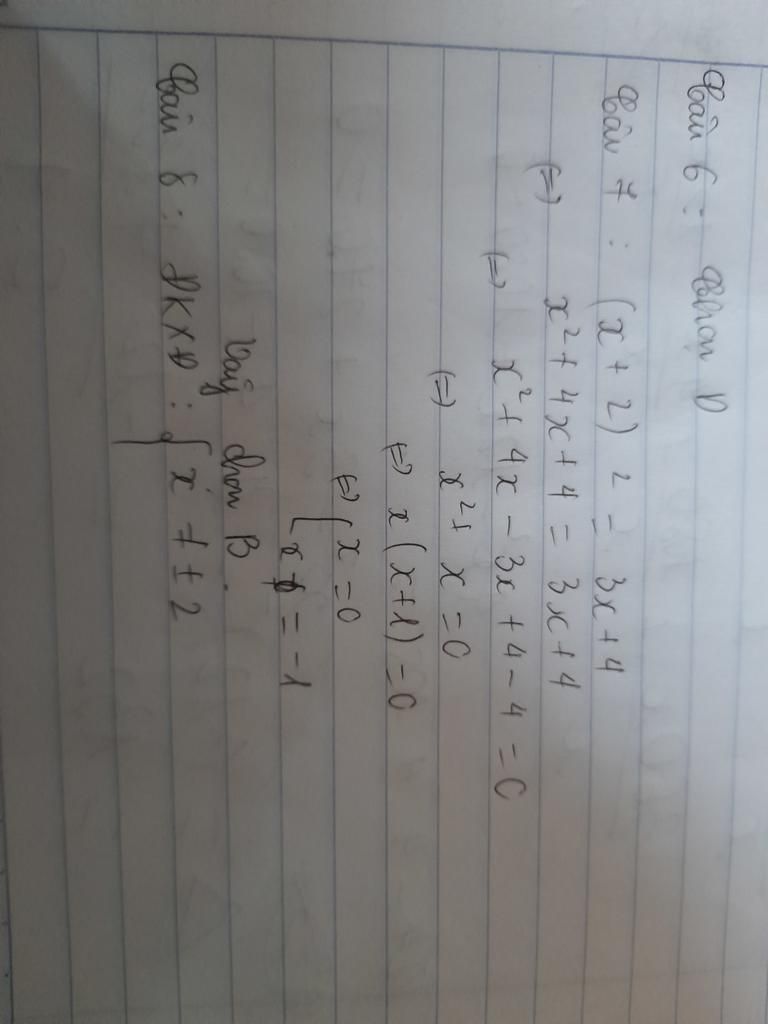 Câu 6 : Chọn D
Câu 7 : (x + 2)² = 3x + 4
(=) x² + 4x + 4 = 3x + 4
(=) x² + 4x - 3x + 4 - 4 = 0
(=) x² + x = 0
(=) x (x + 1) = 0
(=) [ x = 0
x = -1
Vậy chọn B.
Câu 8 : ĐKXĐ : { x ≠ ± 2